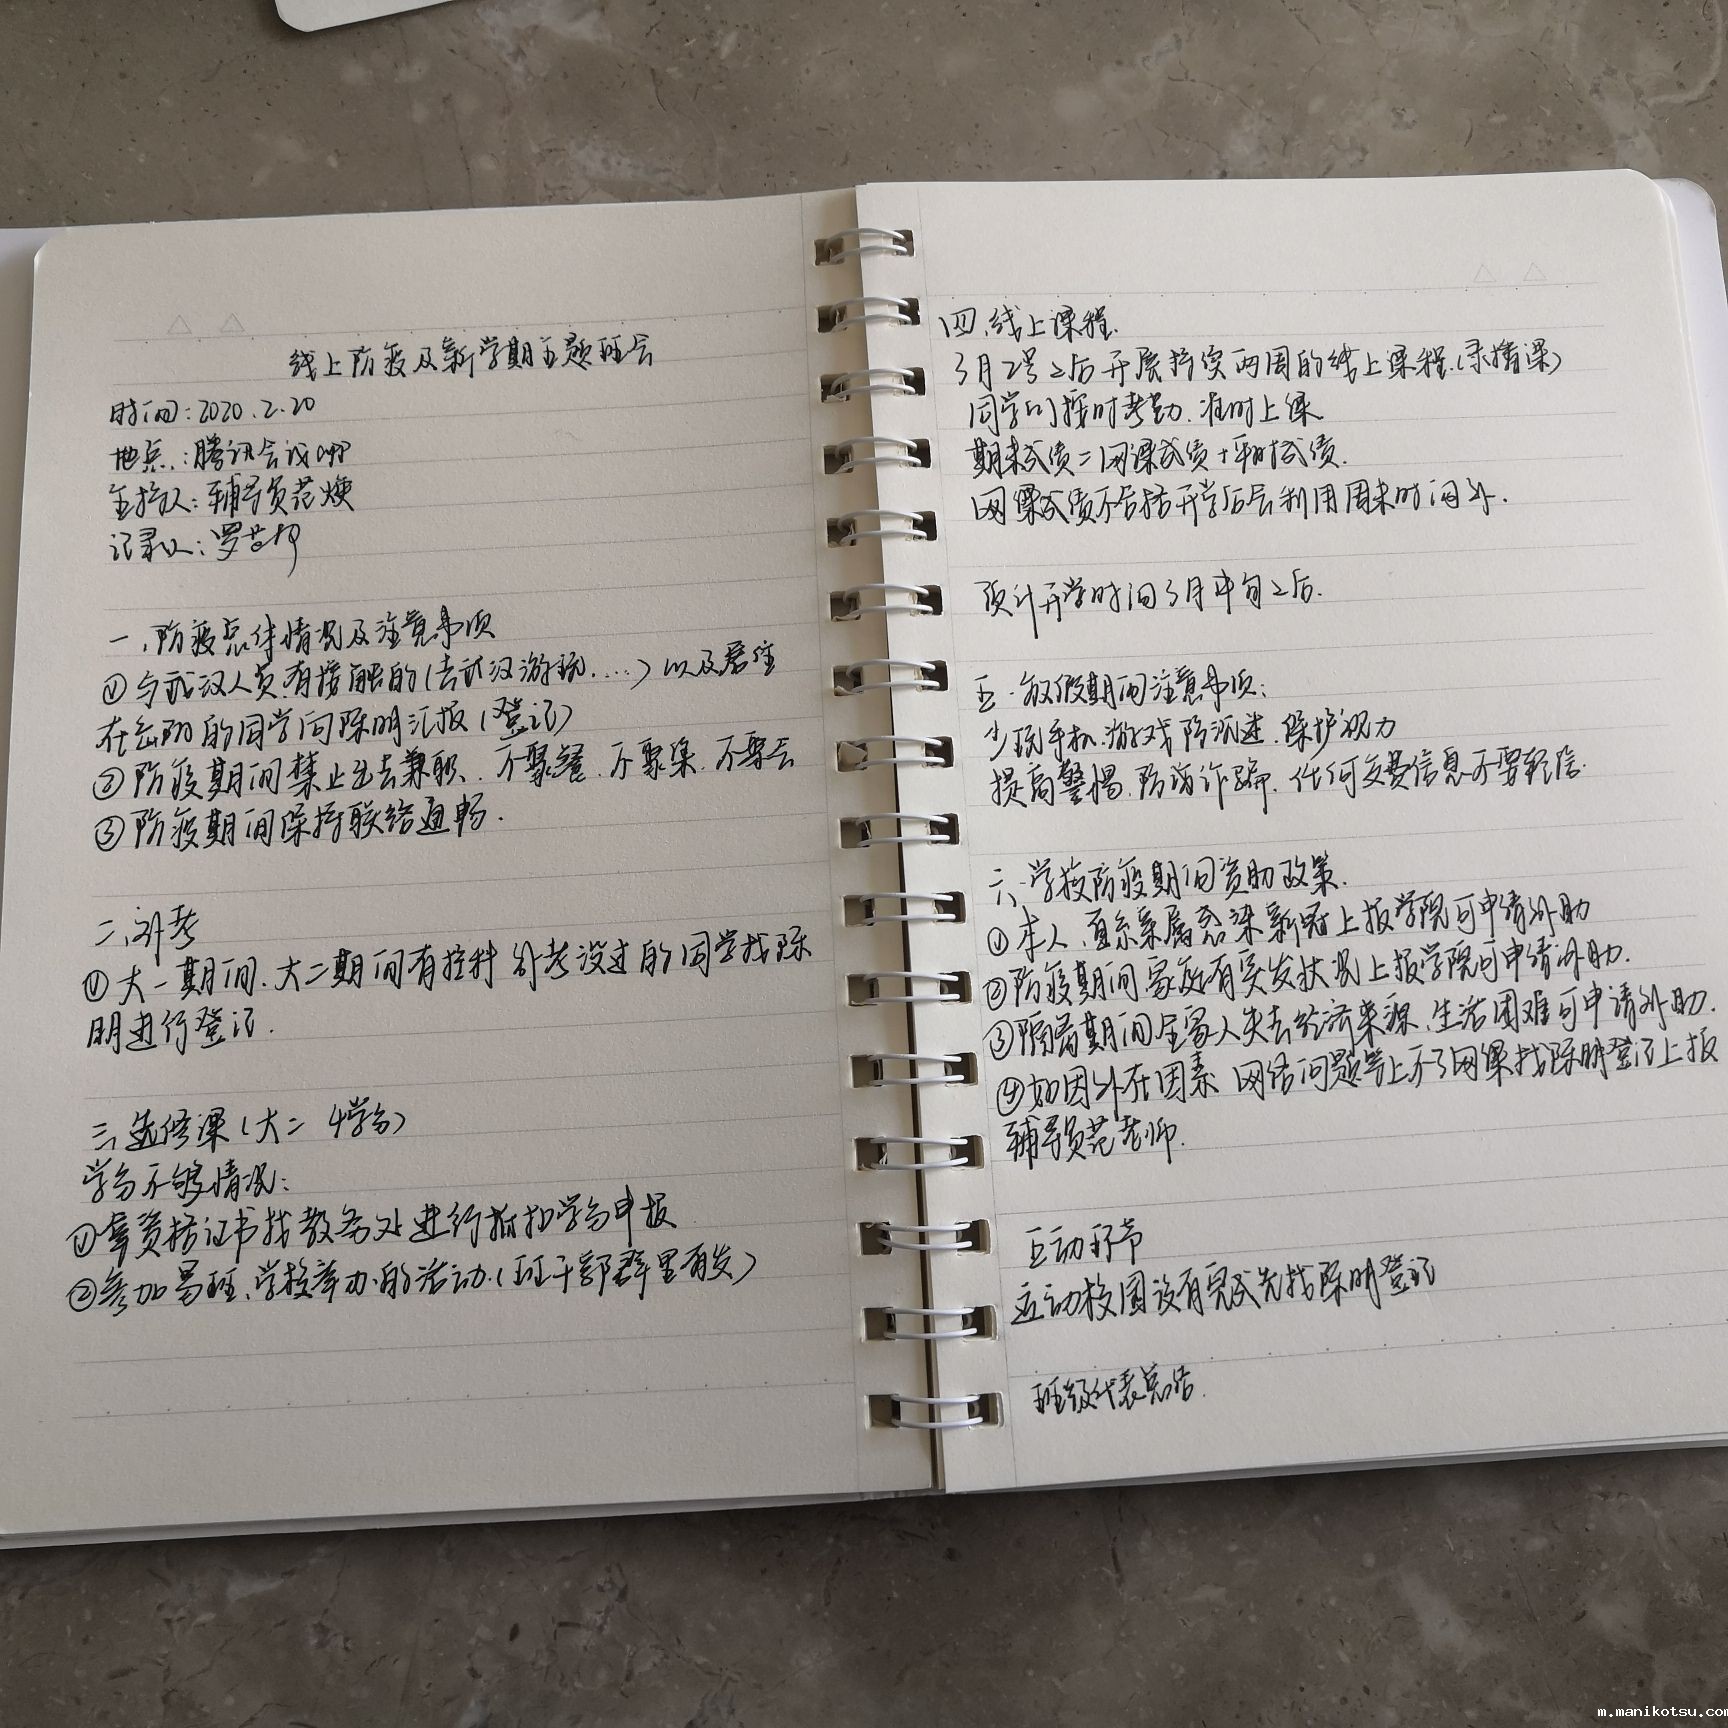 线上防疫及新学期主题班会
时间:2020.2.20
地点:腾讯会议app
主持人:辅导员范焕
记录人:罗
一、防疫总体情况及注意事项
①与武汉人员有接触的(去武汉游玩....)以及居住
在岳阳的同学向陈明汇报(登记)
②防疫期间禁止出去兼职、不聚餐.不聚集.不聚会
③防疫期间保持联络通畅.
二、补考
①大一期间.大二期间有挂科 补考没过的同学找陈
明进行登记.
三、选修课(大二 4学分)
学分不够情况:
①拿资格证书找教务处进行抵扣学分申报
②参加易班、学校举办的活动.(班干部群里有发)
四、线上课程.
3月2号之后开展持续两周的线上课程.(录播课)
同学们按时考勤.准时上课
期末成绩=网课成绩+平时成绩.
网课成绩不合格开学后会利用周末时间补.
预计开学时间3月中旬之后.
五.放假期间注意事项:
少玩手机.游戏防沉迷.保护视力
提高警惕.防诈骗.任何交费信息不要轻信.
六、学校防疫期间资助政策.
①本人.直系亲属感染新冠上报学院可申请补助
②防疫期间.家庭有突发状况上报学院可申请补助.
③隔离期间全家人失去经济来源.生活困难可申请补助.
④如因外在因素.网络问题等上不了网课找陈明登记上报
辅导员范老师.
互动环节
运动校园没有完成先找陈明登记
班级代表总结.
m.manikotsu.com